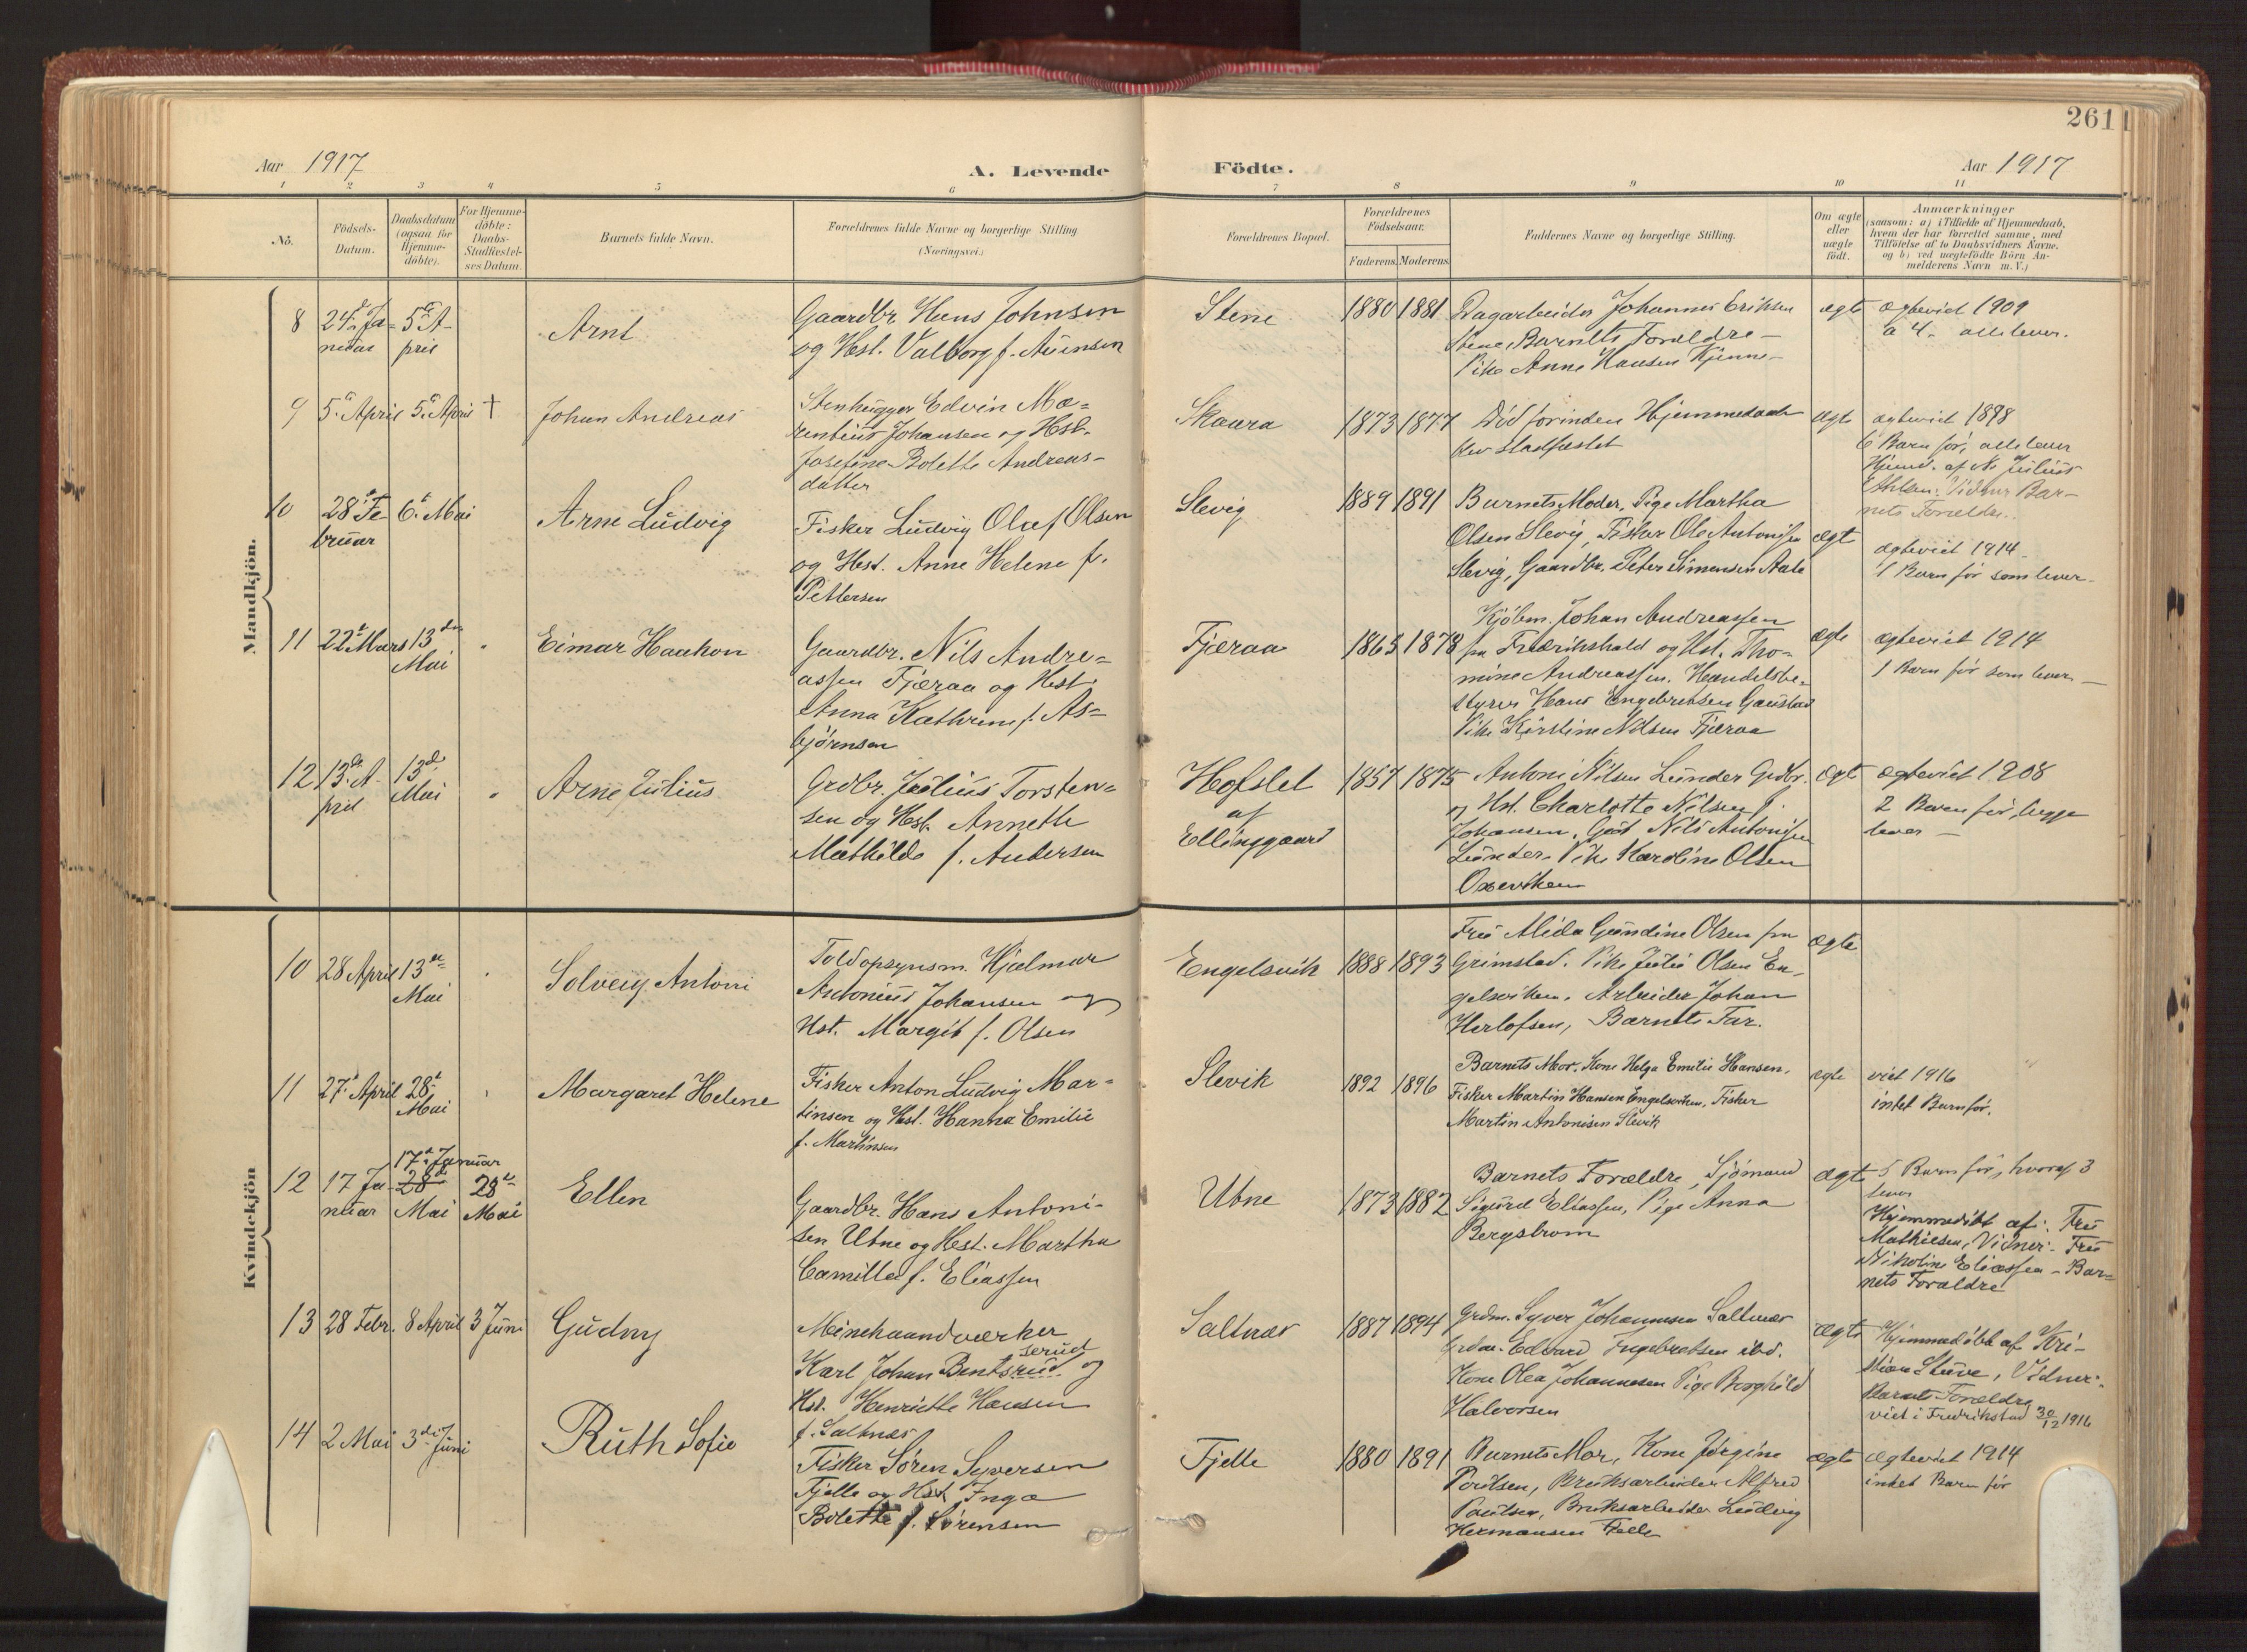 261
Aar 1917
A. Levende
Födte.
Aar 1917
1 2 3 4 5 6 7 8 9 10 11
No.
Födsels-
Datum.
Daabsdatum
(ogsaa for
Hjemme-
döbte).
For Hjemme-
döbte:
Daabs-
Stadfæstel-
ses Datum.
Barnets fulde Navn.
Forældrenes fulde Navne og borgerlige Stilling
(Næringsvei.)
Forældrenes Bopæl.
Forældrenes
Födselsaar.
Faderens. Moderens.
Faddernes Navne og borgerlige Stilling.
Om ægte
eller
uægte
födt.
Anmærkninger
(saasom: a) i Tilfælde af Hjemmedaab,
hvem der har forrettet samme, med
Tilföielse af to Daabsvidners Navne,
og b) ved uægtefödte Börn An-
melderens Navn m. V.)
Mandkjön.
8
24d Ja-
nuar
5te A-
pril
Arnt
Gaardbr. Hans Johnsen
og Hst. Valborg f. Auensen
Stene
1880 1881
Dagarbeider Johannes Eriksen
Stene, Barnets Forældre -
Pike Anne Hansen Kjenne-
ægte
ægteviet 1909
a 4. alle lever.
9
5te April
5te April
†
Johan Andreas
Stenhugger Edvin Ma-
rentius Johansen og Hst.
Josefine Bolette Andreas-
datter
Skaara
1873 1877
Död forinden Hjemmedaab
blev stadfæstet
ægte
ægteviet 1898
6 Barn för, alle lever
Hjemd. af Julius
Vidner Bar-
nets Forældre.
10
28de Fe-
bruar
6te Mai
Arne Ludvig
Fisker Ludvig Olaf Olsen
og Hst. Anne Helene f.
Pettersen
Slevig
1889 1891
Barnets Moder, Pige Martha
Olsen Slevig, Fisker Ole Antonisen
Slevig, Gaardbr. Peter Simensen Aale
ægt
ægteviet 1914
1 Barn för som lever.
11
22de Mars
13de
Mai
"
Eimar Haakon
Gaardbr. Nils Andre-
assen Fjæraa og Hst.
Anna Kathrine f. As-
björnsen
Fjæraa
1865 1878
Kjöbm. Johan Andreassen
fra Fredrikshald og Hst. Tho-
mine Andreassen. Handelsbe-
styrer Hans Engebretsen Gaustad
Pike Kirstine Nilsen Fjæraa
ægte
ægteviet 1914
1 Barn för som lever
12
13de A-
pril
13de
Mai
"
Arne Julius
Grdbr. Julius Torsten-
sen og Hst. Annette
Mathilde f. Andersen
Hofslet
af
Ellinggaard
1857 1875
Antoni Nilsen Lunder Grdbr.
og Hst. Charlotte Nilsen f.
Johansen, Gaut Nils Antonisen
Lunder. Pike Karoline Olsen
Oxeviken
ægt
ægteviet 1908
2 Barn för, begge
lever
Kvindekjön
10
28 April
13de
Mai
"
Solveig Antoni
Toldopsynsm. Hjalmar
Antonius Johansen og
Hst. Margit f. Olsen
Engelsvik
1888 1893
Fru Alida Gundine Olsen fra
Grimstad. Pike Julie Olsen En-
gelsviken. Arbeider Johan
Herlofsen, Barnets Far.
ægte
11
27de April
28de
Mai
"
Margaret Helene
Fisker Anton Ludvig Mar-
tinsen og Hst. Hanna Emilie
f. Martinsen
Slevik
1892 1896
Barnets Mor. Kone Helga Emilie Hansen,
Fisker Martin Hansen Engelsviken, Fisker
Martin Antonisen Slevik
ægte
viet 1916
intet Barn för.
12
17 Ja-
nuar
17de Januar
28de
Mai
28de
Mai
Ellen
Gaardbr. Hans Antoni-
sen Utne og Hst. Martha
Camilla f. Eliassen
Utne
1873 1882
Barnets Forældre, Sjömand
Sigurd Eliassen, Pige Anna
Bergstrom
ægte
5 Barn för, hvoraf 3
lever
Hjemmedöbt af: Fru
Mathiesen, Vidner: Fru
Nikoline Eliassen - Bar-
nets Forældre
13
28 Febr.
8 April
3 Juni
Gudny
Minehaandværker
serud
Karl Johan Bentsrud og
Hst. Henriette Hansen
f. Saltnæs
Saltnæs
1887 1894
Grdm. Syver Johannesen Saltnæs
Grdm. Edvard Ingebretsen ibd.
Kone Olea Johannesen Pige Borghild
Halvorsen
ægte
Hjemmedöbt af Kri-
stian Stuve, Vidner:
Barnets Forældre
viet i Fredrikstad 30/12 1916
14
2 Mai
3de Juni
Ruth Sofie
Fisker Sören Syversen
Fjelle og Hst. Inga
Bolette f. Sörensen
Fjelle
1880 1891
Barnets Mor, Kone Jörgine
Poulsen, Bruksarbeider Alfred
Paulsen, Bruksarbeider Ludvig
Hermansen Fjelle
ægte
ægteviet 1914
intet Barn för